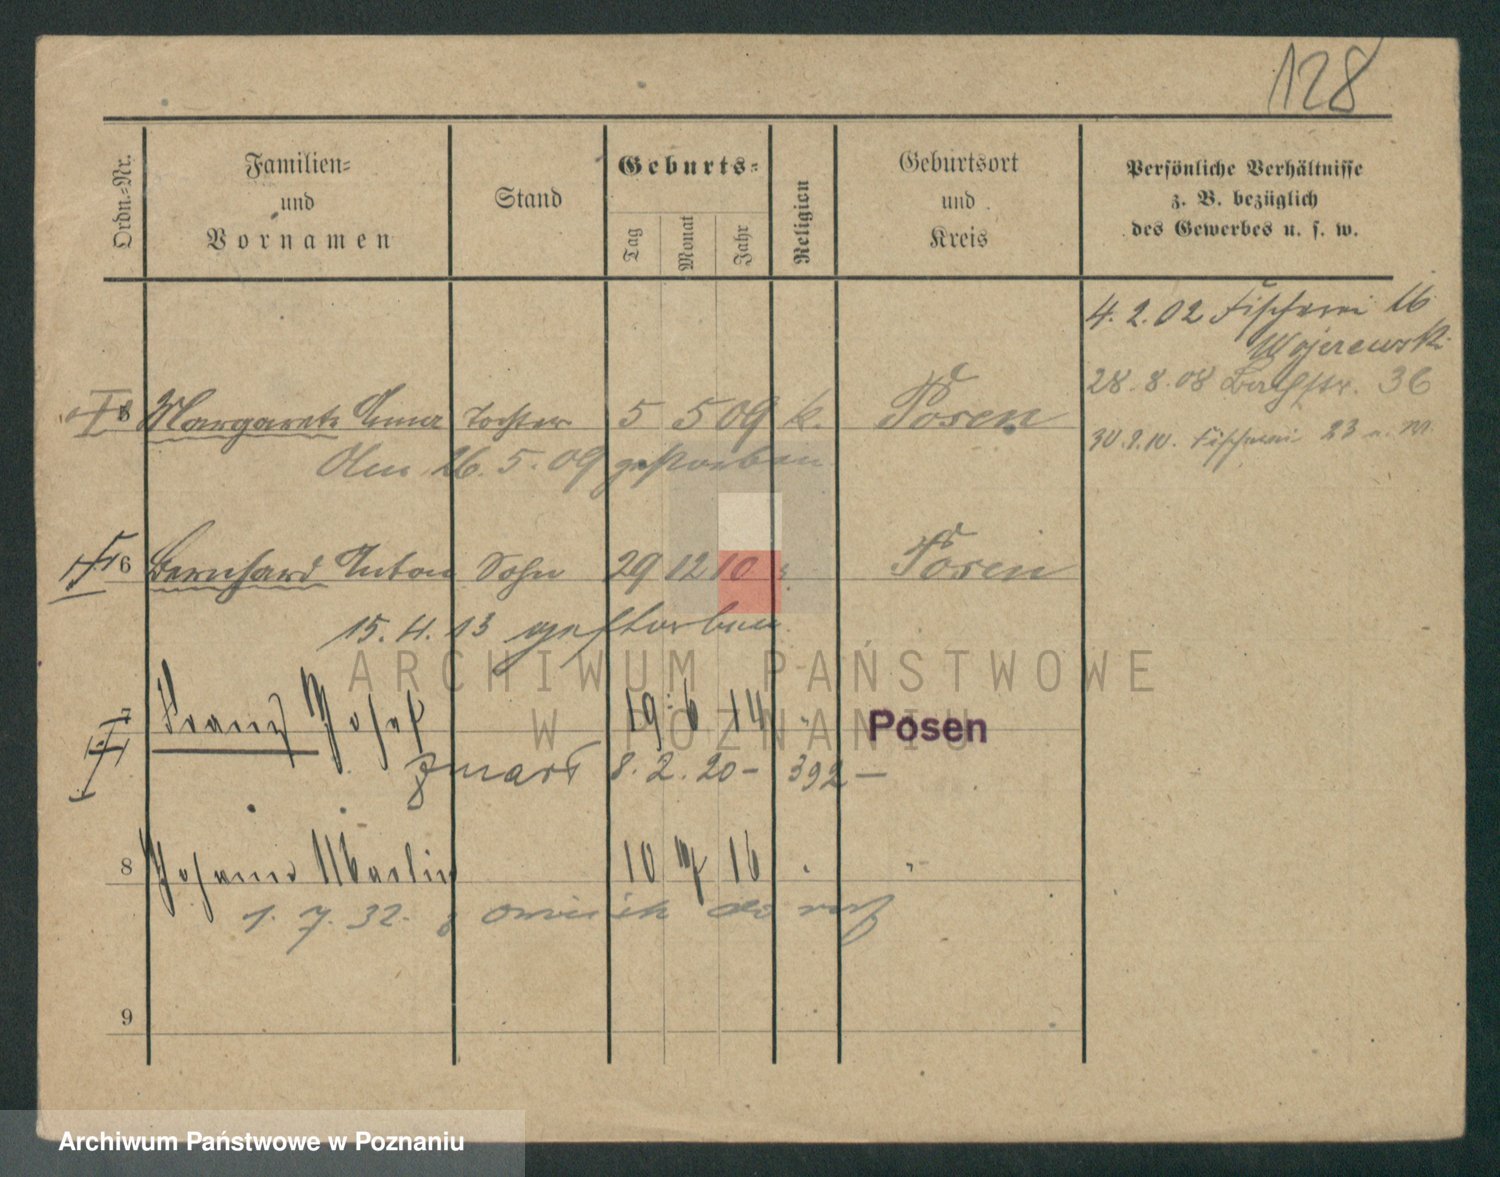 128
Ordn.-Nr.
Familien-
und
Vornamen
Stand
Geburts-
Tag
Monat
Jahr
Religion
Geburtsort
und
Kreis
Persönliche Verhältnisse
z. B. bezüglich
des Gewerbes u. s. w.
4. 2. 02 Fischerei 16
28. 8. 08 Bachstr. 36
30. 9. 10. Fischerei 23
Margarete Anna Tochter 5 5 09 k. Posen
Am 26. 5. 09 gestorben
6 Bernhard Anton Sohn 29 12 10 Posen
15. 4. 13 gestorben
7 Franz Josef 19 6 14 " Posen
zmarł 8. 2. 20 - 392 -
8 Johann Martin 10 16 "
1. 7. 32.
9
ARCHIWUM PAŃSTWOWE
W POZNANIU
Archiwum Państwowe w Poznaniu